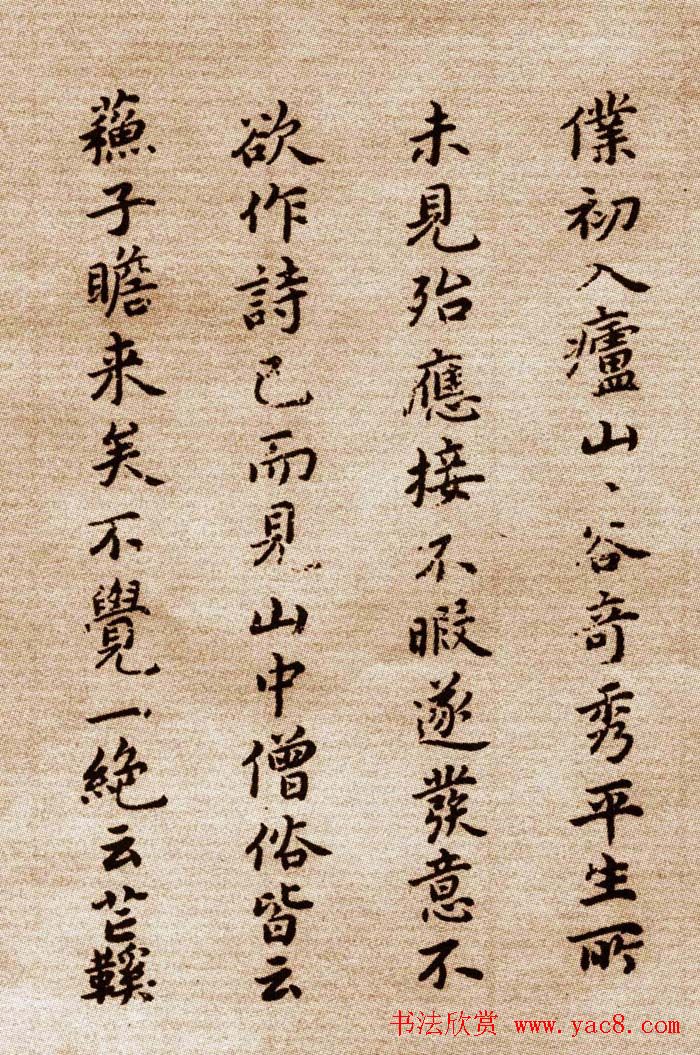 僕初入廬山、谷奇秀平生所
未見殆應接不暇遂發意不
欲作詩已而見山中僧俗皆云
蘓子瞻来矣不覺一絶云芒鞵
书法欣赏 www.yac8.com